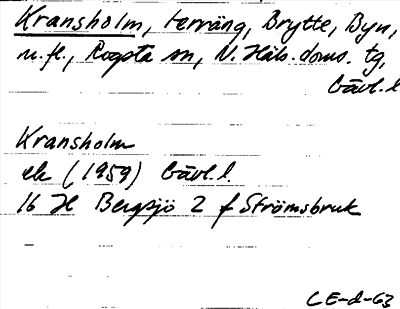 Kransholm, terräng, Brytte, Byn,
m.fl., Rogsta sn, N. Häls. doms. tg,
Gävl. l
Kransholm
ek (1959) Gävl. l.
16 H Bergsjö 2 f Strömsbruk
CE-d-63